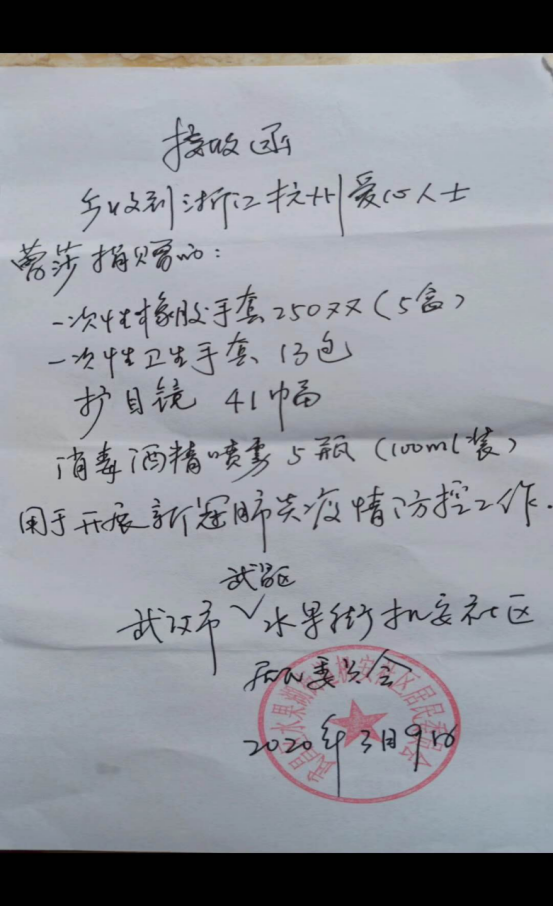 接收函
今收到浙江杭州爱心人士
曹莎捐赠的：
一次性橡胶手套250双（5盒）
一次性卫生手套 13包
护目镜 41副
消毒酒精喷雾5瓶（100ml装）
用于开展新冠肺炎疫情防控工作.
武昌区
武汉市√水果街机安社区
居民委员会
2020年3月9日
武昌区水果湖街道机安社区居民委员会